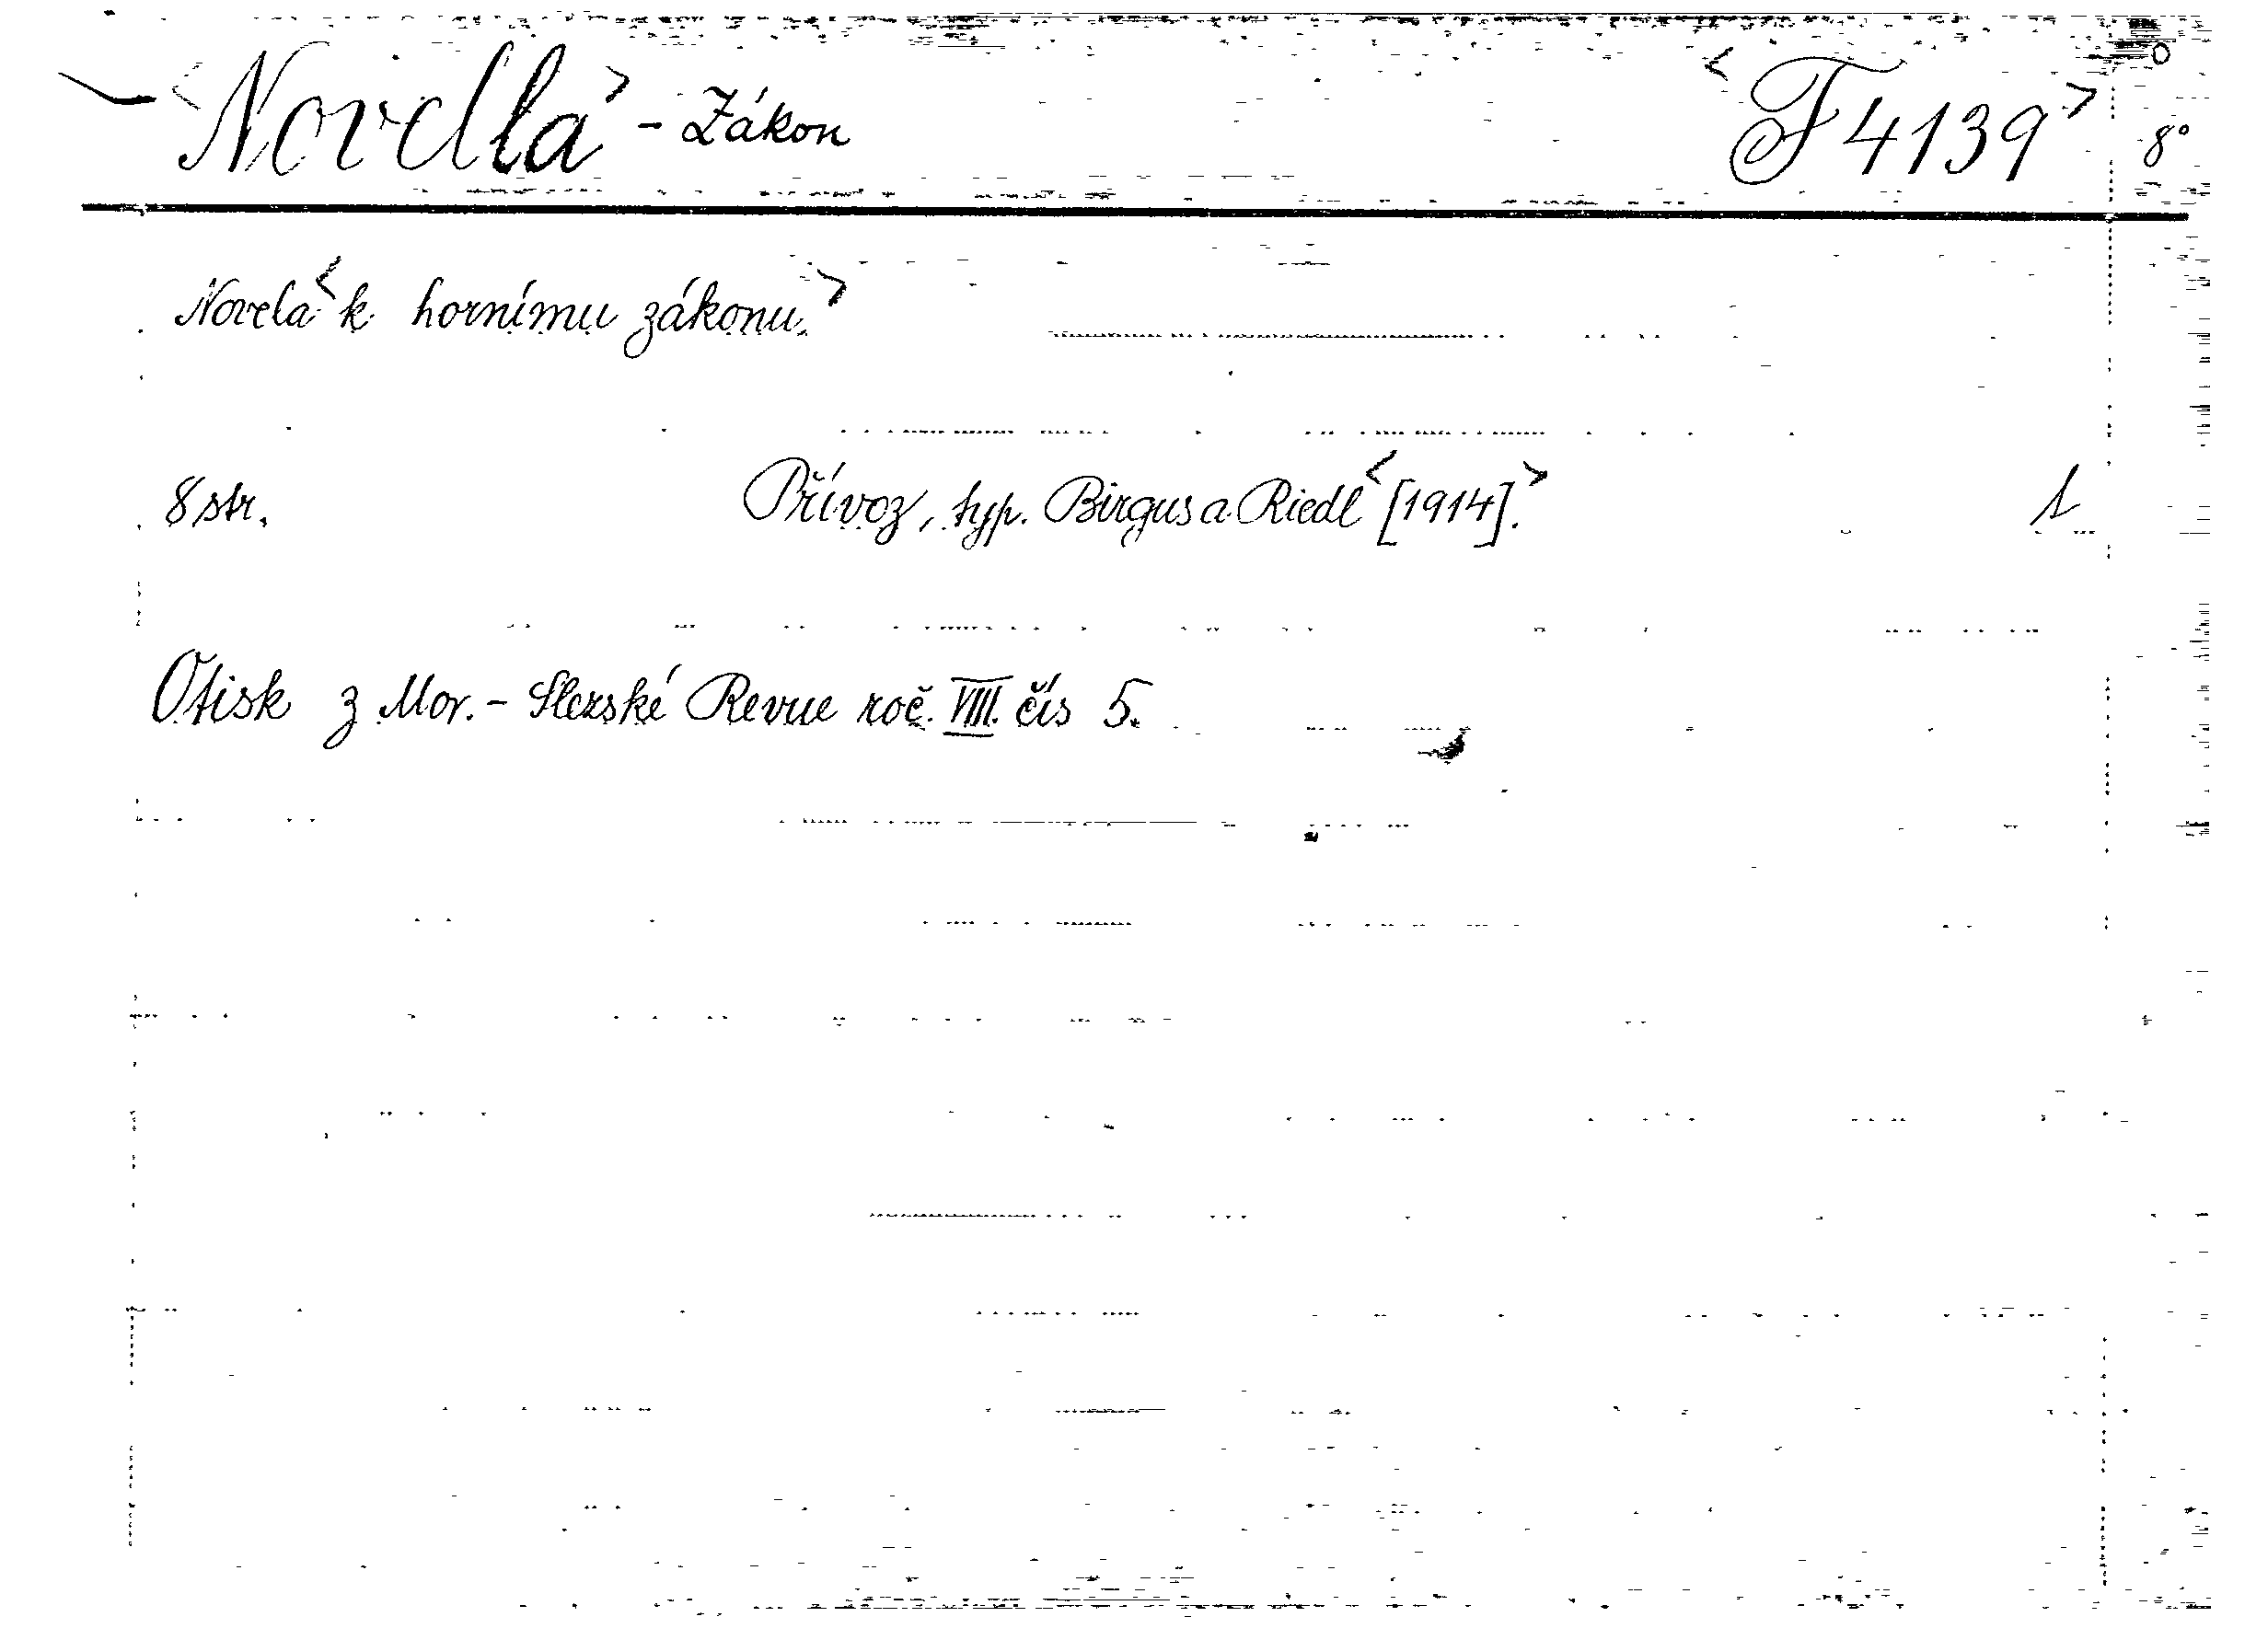 <Novella> - Zákon <F 4139> 8°
Novela <k hornímu zákonu.>
8 str. Přívoz, typ. Birgus a Riedl <[1914].> 1
Otisk z Mor. - Slezské Revue roč. VIII. čís 5.